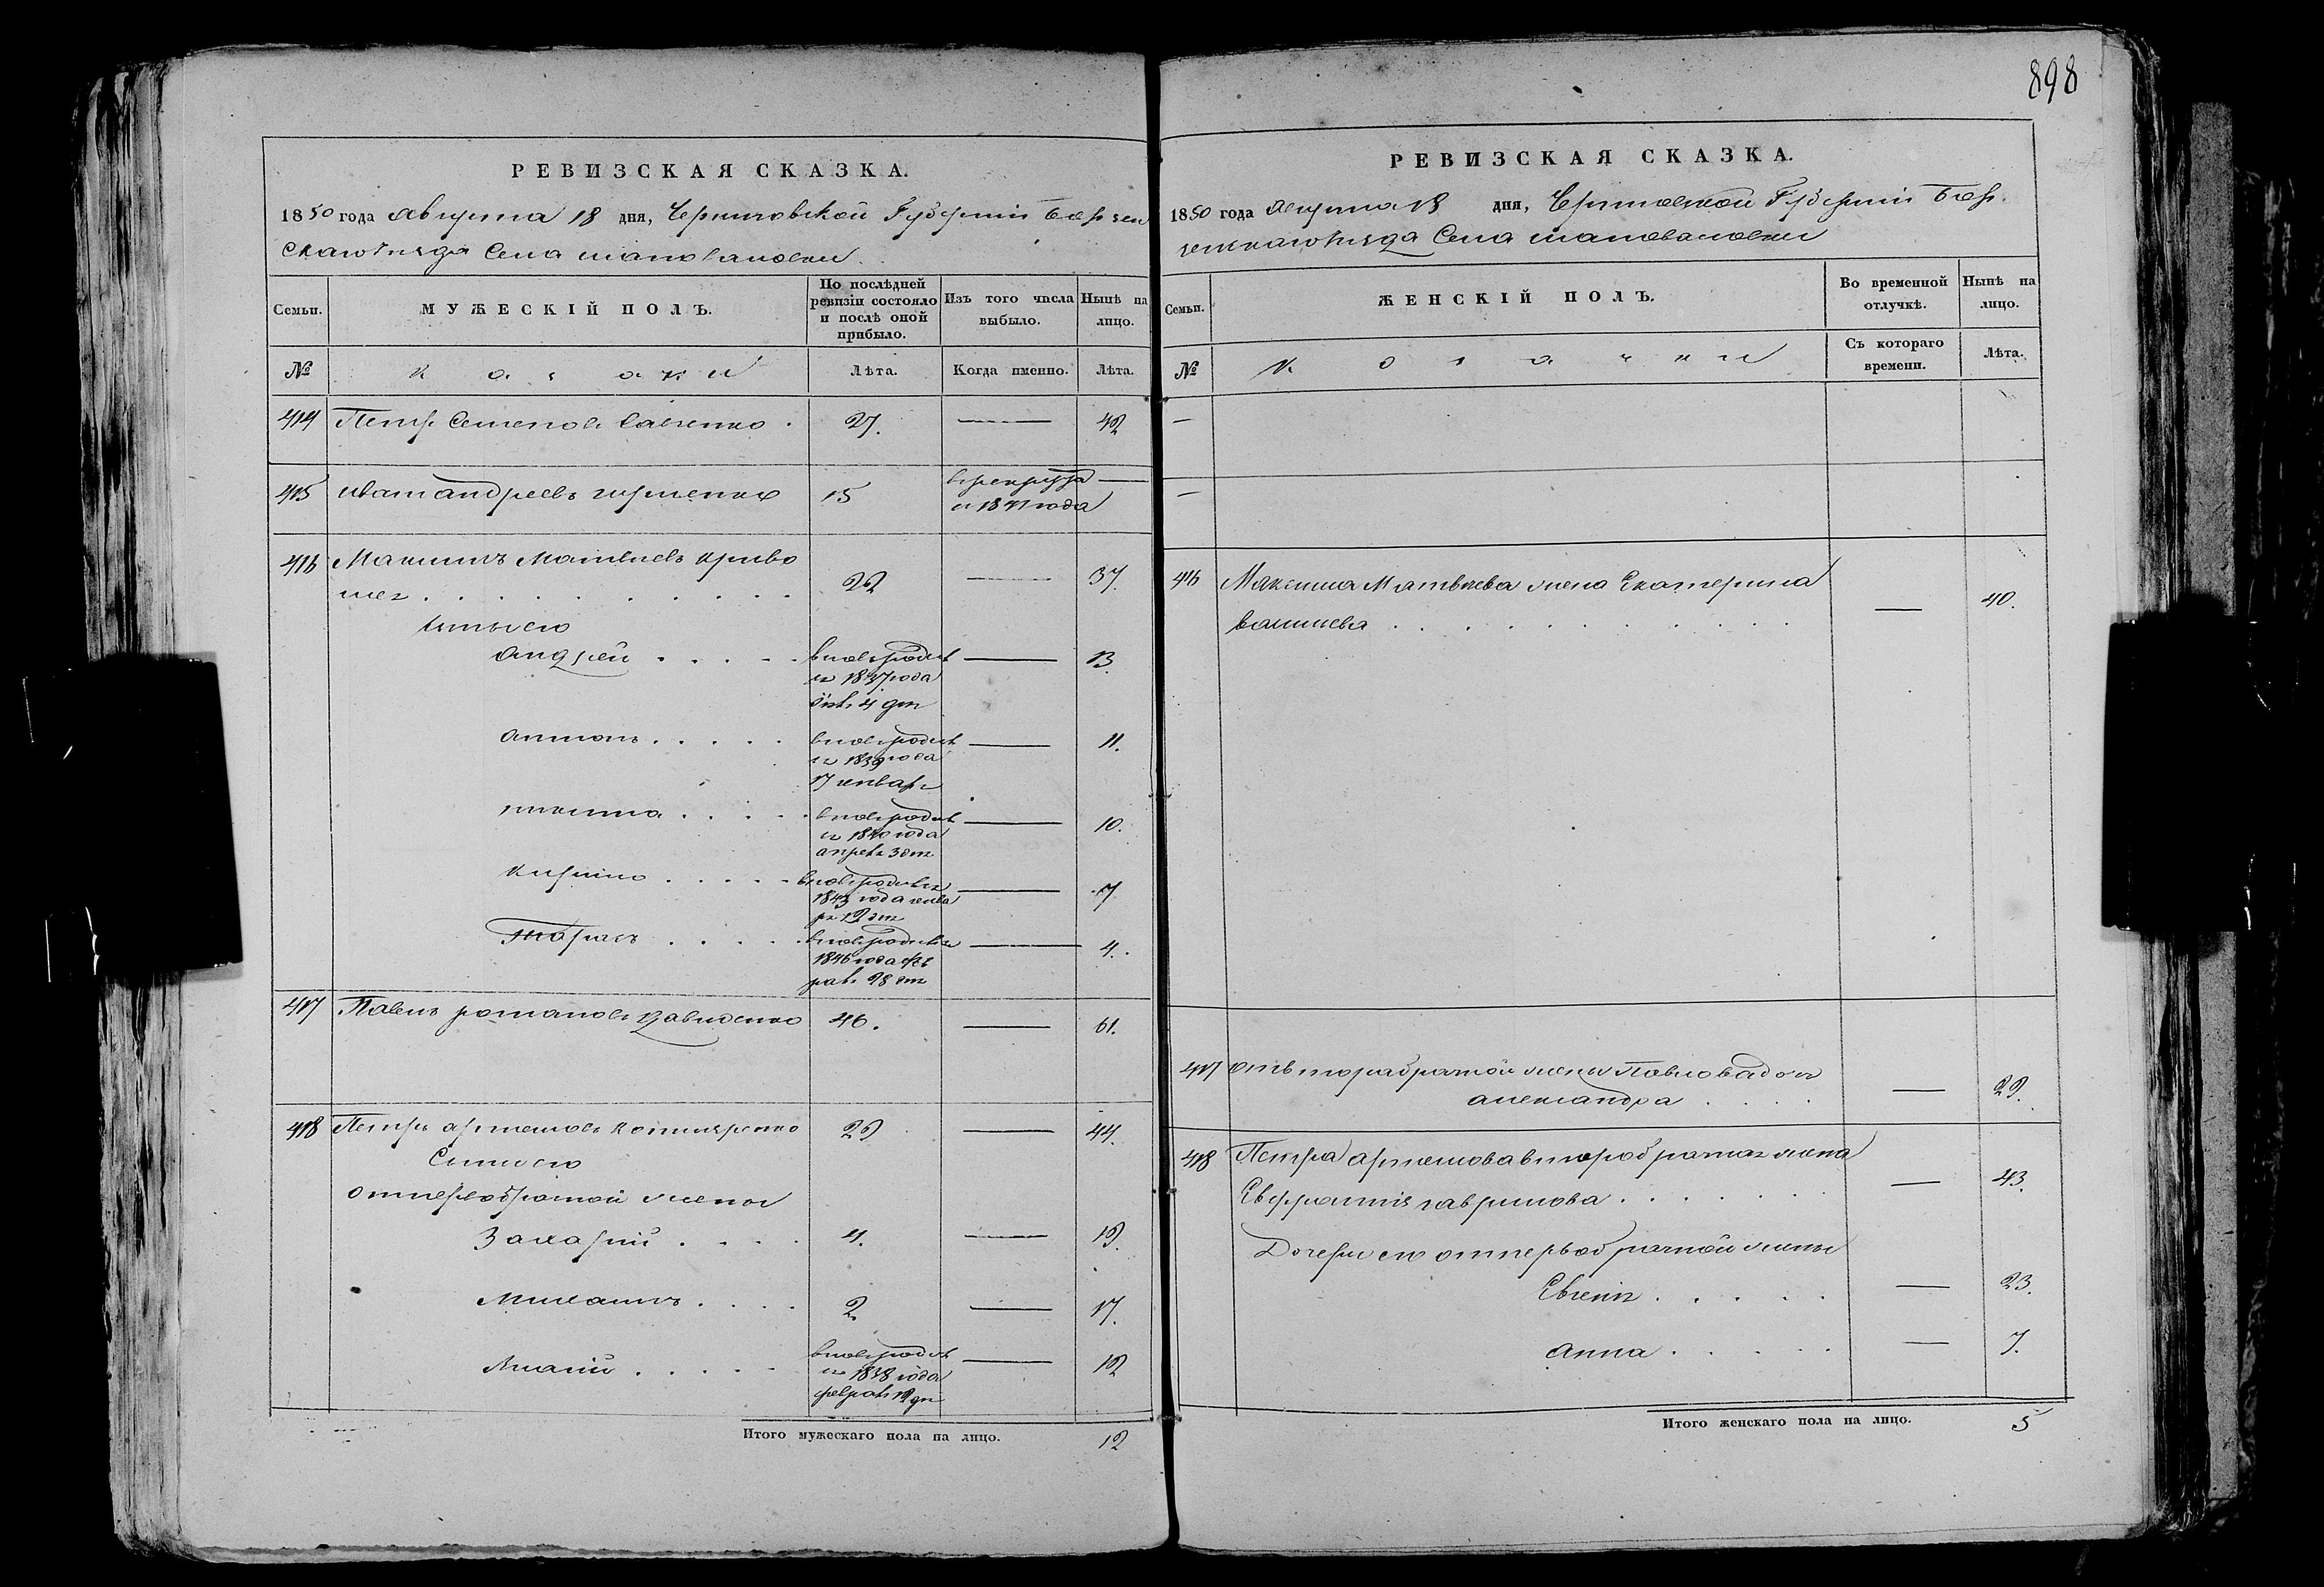 898
РЕВИЗСКАЯ СКАЗКА.
1850 года августа 18 дня, Черниговской Губерніи Борзен
скаго уезда Села Шаповаловки
Семьи. МУЖЕСКІЙ ПОЛЪ. По послѣдней ревизіи состояло и послѣ оной прибыло. Изъ того числа выбыло. Нынѣ на лицо.
№ Козаки Лѣта. Когда именно. Лѣта.
414 Петр Семенов Савченко 27. — 42
415 Иван Андреевъ 15 в рекруты
с 1841 года
416 Максимъ Матвѣевъ Криво
шея 22 — 37.
Андрей вновь родил — 13.
ся 1837 года
4 дня
Антонъ вновь родил — 11.
ся 1839 года
17 генваря
Никита вновь родил — 10.
ся 1840 года
апрель 3 дня
Кирило вновь родился — 7
1843 года генва
ря 12 дня
Тарасъ вновь родился — 4.
1846 года фев
раль 28 дня
417 Павел Романовъ Давиденко 46. — 61.
418 Петръ Артемовъ Котляренко 29 — 44.
Сыни его
от первобрачной жены
Захарій 4. — 19.
Михаилъ 2 — 17.
вновь родил — 12
ся 1838 года
февраль 12 дня
Итого мужескаго пола на лицо. 12
РЕВИЗСКАЯ СКАЗКА.
1850 года августа 18 дня, Черниговской Губерніи Бор
зенскаго уезда Села Шаповаловки
Семьи. ЖЕНСКІЙ ПОЛЪ. Во временной отлучкѣ. Нынѣ на лицо.
№ Козачки Съ котораго времени. Лѣта.
—
—
416 Максима Матвѣева жена Екатерина
— 40.
417 От второбрачной жены Павлова дочь
Александра — 29.
418 Петра Артемова второбрачная жена
Евфросинія Гаврилова — 43.
Дочери его от первобрачной жены
Евгенія — 23.
Анна — 7.
Итого женскаго пола на лицо. 5